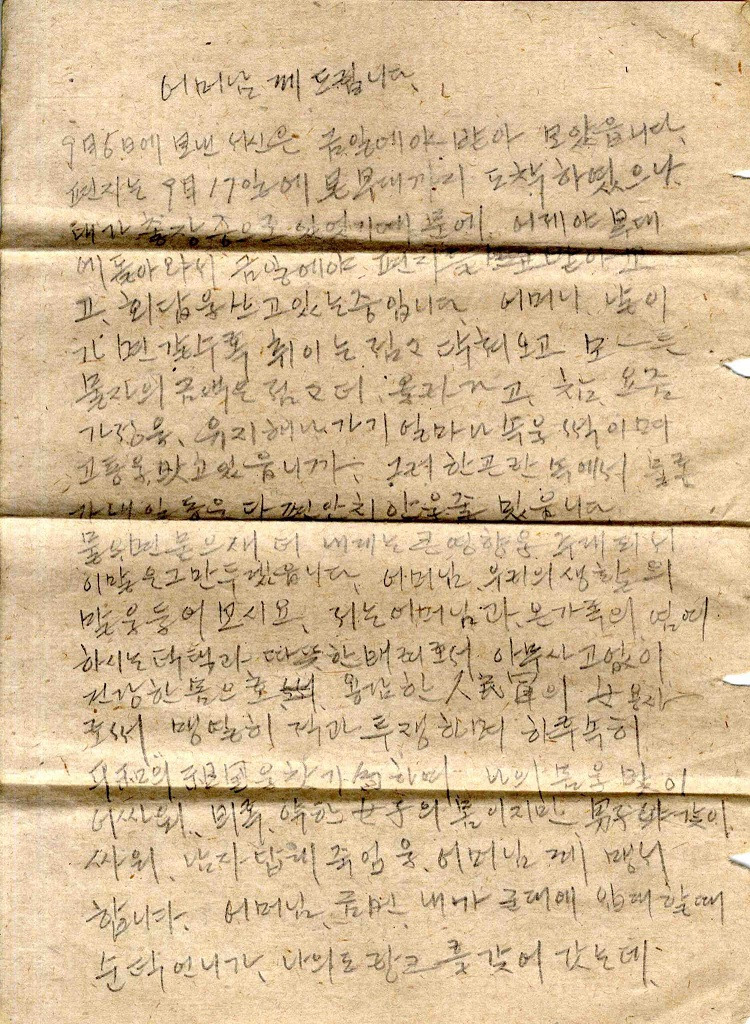 어머님 께 드립니다.
9月5日에 보낸 서신은 금일에야 받아 보았읍니다.
편지는 9月17일에 본부대까지 도착하였으나.
내가 출장중으로 있었기 때문에. 어제야 본대
에 돌아와서 금일에야. 편지를 받아보
고. 회답을 쓰고있는중입니다. 어머니. 날이
가면 갈수록 취이는 점점 닥쳐오고 모-든
물자의 금액은 점점 더. 올라가고. 참. 요즘
가정을. 유지해나가기 얼마나 두움썩이며
고통을 받고있읍니까. 그러한곤란 속에서 물론
가내 일동은 다 편안치 않을줄 믿읍니다.
어머님. 우리의 생활의
말을들어 보시요. 저는어머님과 온가족의 염여
하시는덕택과 따뜻한배려로서 아무사고없이
건강한몸으로 용감한 人民軍의 女용사
로써 맹렬히 적과 투쟁하며 하루속히
祖國을 나의몸을 받이
어싸워. 비록. 약한 女子의 몸이지만. 男子와같이.
싸워. 남자답해 죽엄을. 어머님께 맹서
합니다. 어머님. 금번. 내가 군대에 입대할때
순덕언니가. 나의도랑크를갖어 갔는데.